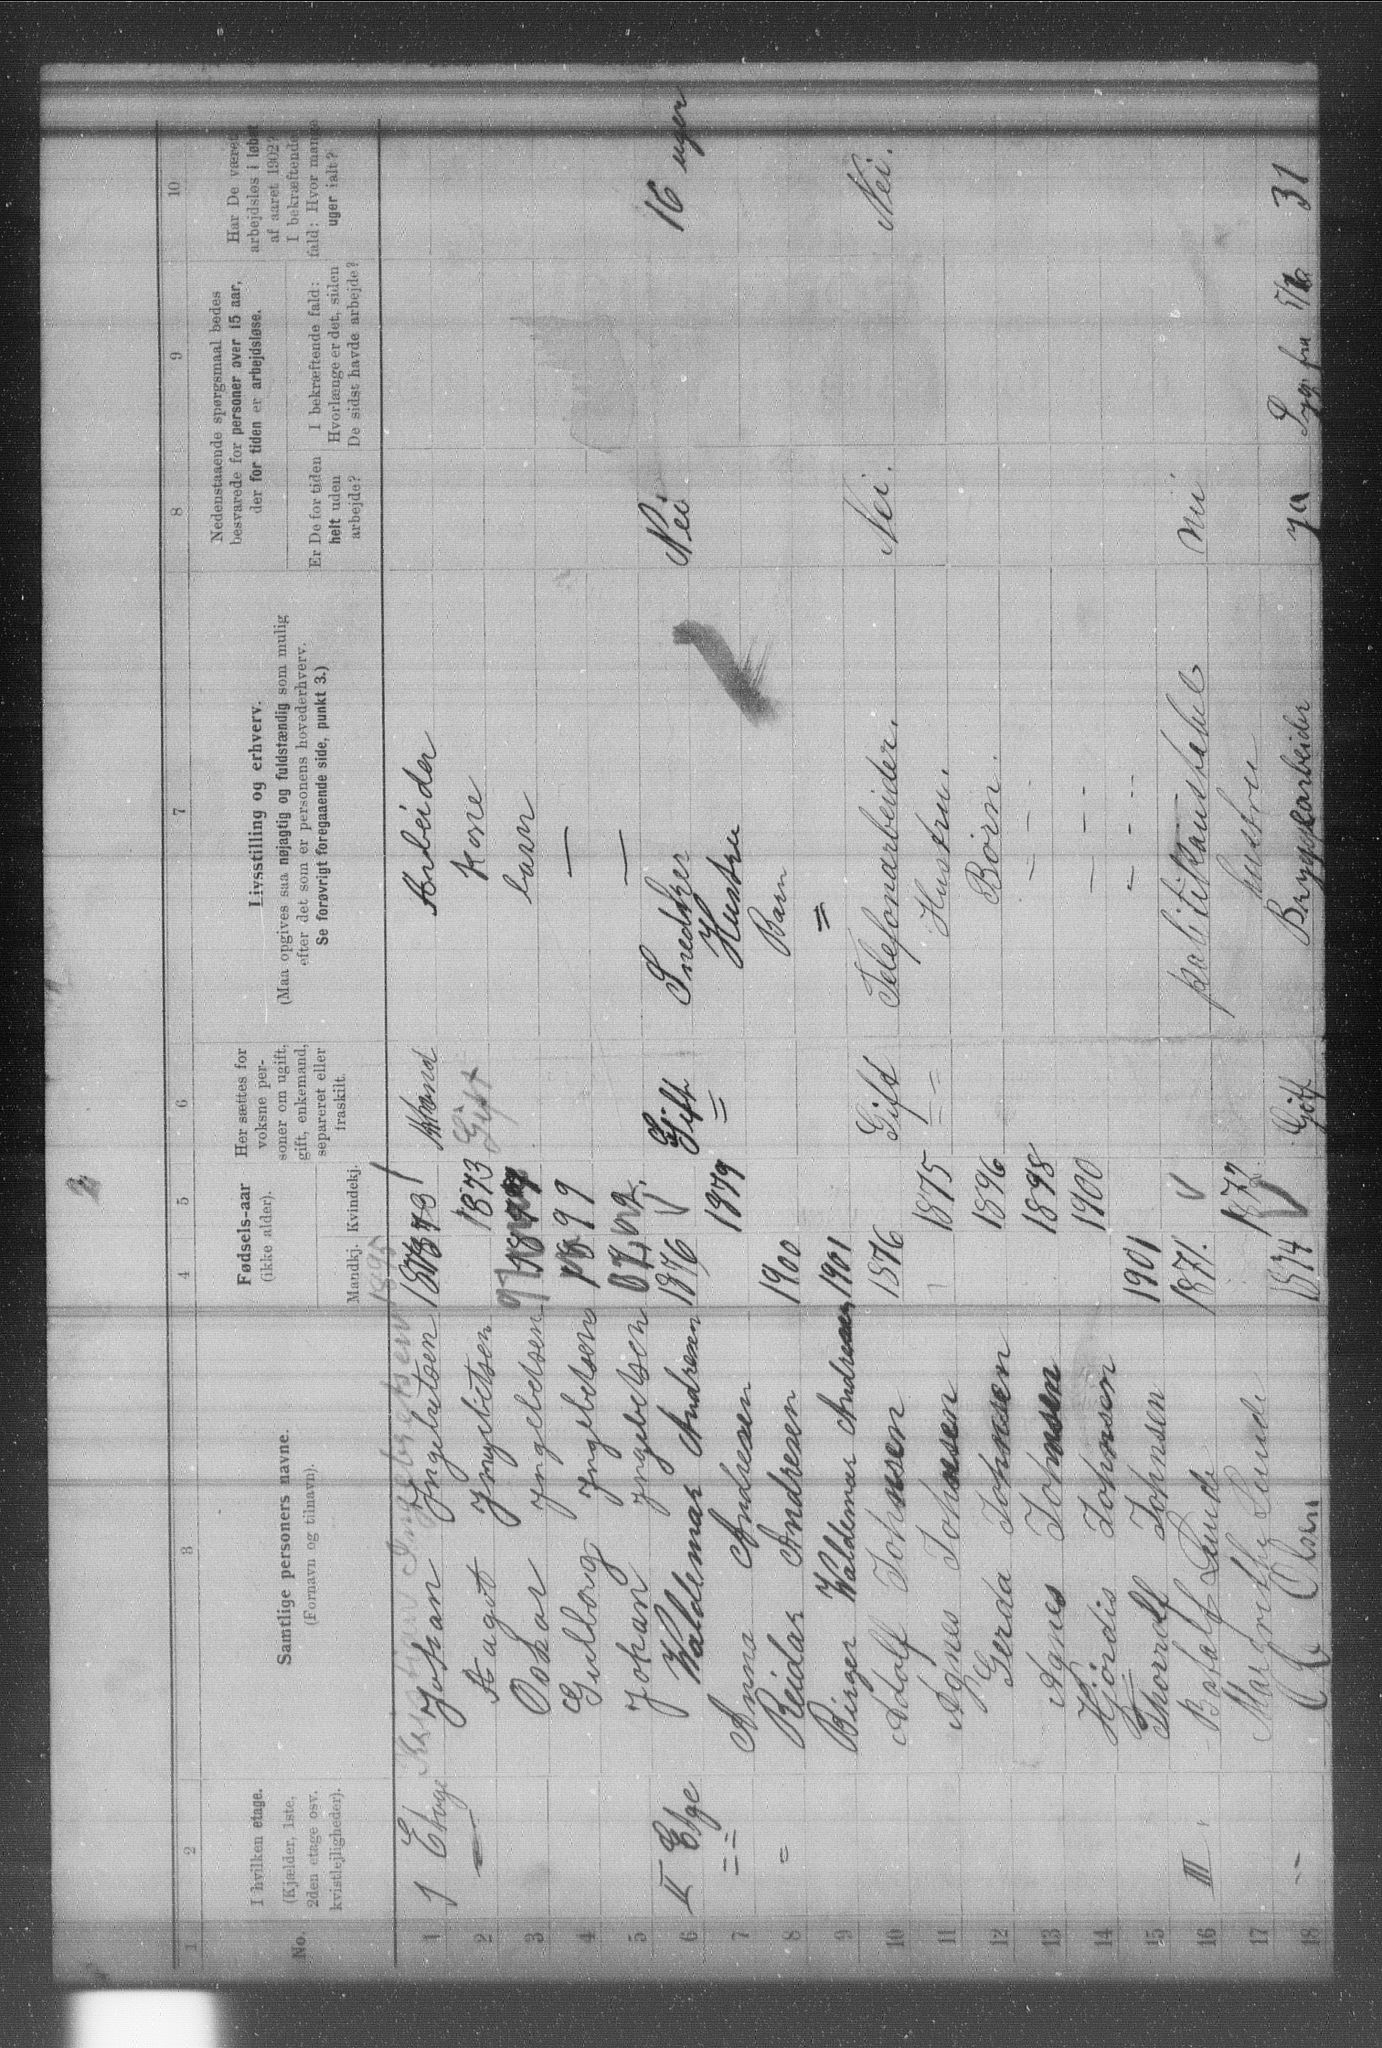 2
1
2
3
4
5
6
7
8
9
10
No.
I hvilken etage.
(Kjælder, 1ste,
2den etage osv.
kvistlejligheder).
Samtlige personers navne.
(Fornavn og tilnavn).
Fødsels-aar
(ikke alder).
Mandkj.
Kvindekj.
Her sættes for
voksne per-
soner om ugift,
gift, enkemand,
separeret eller
fraskilt.
Livsstilling og erhverv.
(Maa opgives saa nøjagtig og fuldstændig som mulig
efter det som er personens hovederhverv.
Se forøvrigt foregaaende side, punkt 3.)
Nedenstaaende spørgsmaal bedes
besvarede for personer over 15 aar,
der for tiden er arbejdsløse.
Er De for tiden
helt uden
arbejde?
I bekræftende fald:
Hvorlænge er det, siden
De sidst havde arbejde?
Har De været
arbejdsløs i løbet
af aaret 1902?
I bekræftende
fald: Hvor mange
uger ialt?
Kristian Ingebretsen 1895
1 1 Etage Johan Ingebretsen Arbeider
2 Aagot Ingebetsen 1873 Gift Kone
3 Oskar Ingebetsen barn
4 Gulborg Ingebetsen —
5 Johan Ingebetsen —
6 II Etge Waldemar Andresen 1876 Gift Snedker Nei 16 uger
7 == Anna Andresen 1879 = Hustru
8 = Reidar Andresen 1900 Barn
9 Birger Waldemar Andresen 1901 =
10 Adolf Johnsen 1876 Gift Telefonarbeider. Nei. Nei.
11 Agnes Johnsen 1875 = = Hustru.
12 Gerda Johnsen 1896 Børn.
13 Agnes Johnsen 1898 - - -
14 Hjørdis Johnsen 1900 - - -
15 Thorolf Johnsen 1901 - - -
16 III Botalf Lunde 1871. V politikonstabel nei
17 Margrethe Lunde 1877 hustru
18 - Olsen 1874 Gift Bryggearbeider ja Syg fra 31